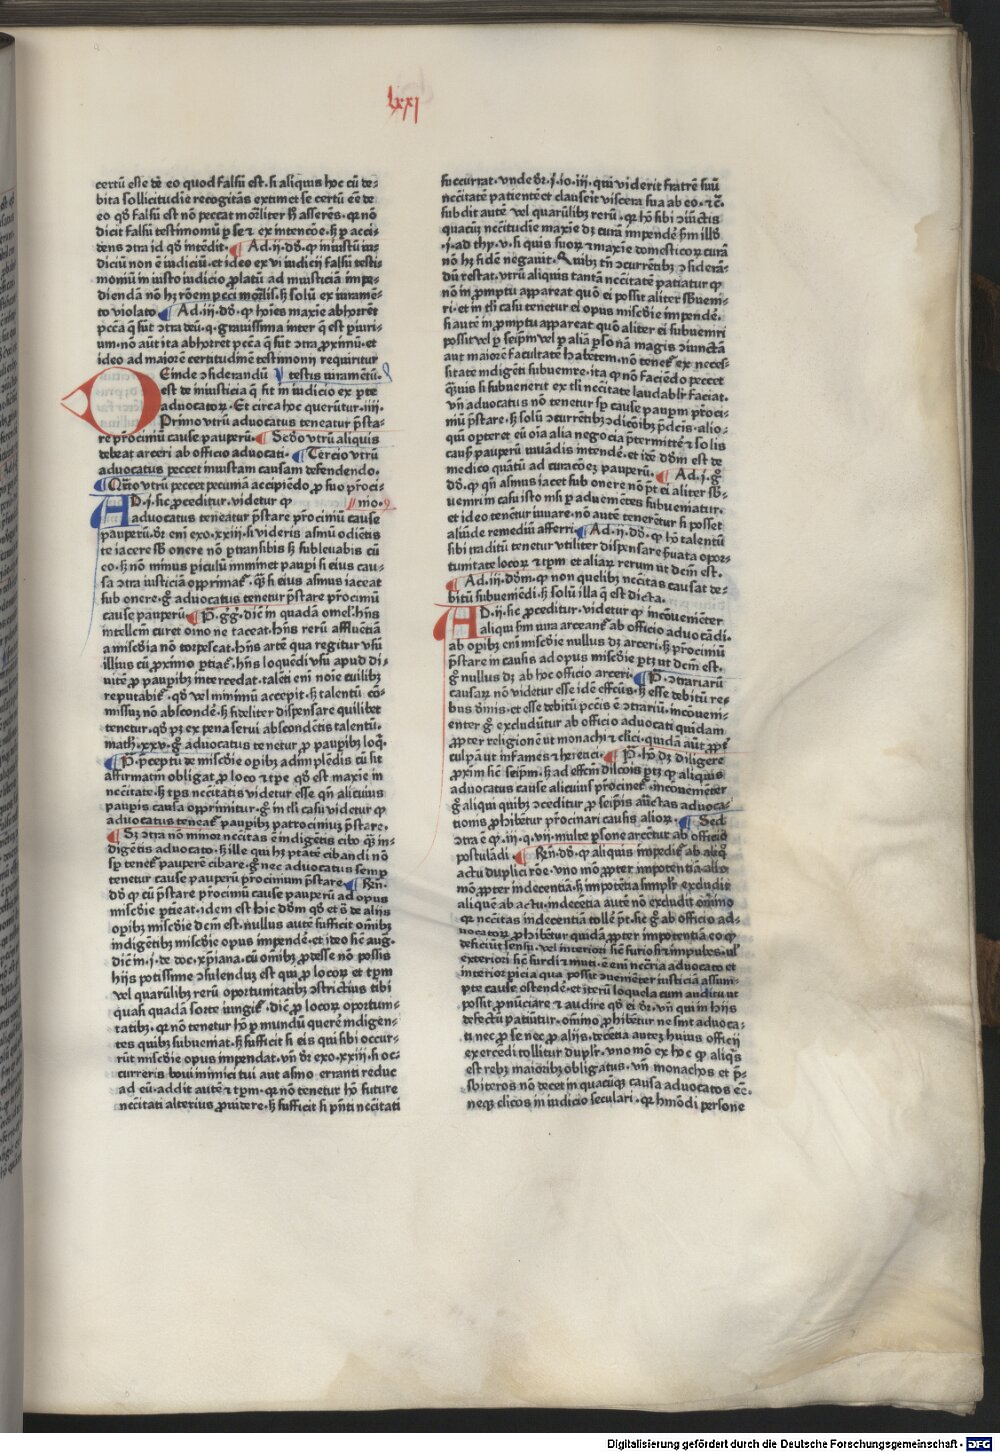 lxxi
certū esse de eo quod falsū est. si aliquis hoc cū de⸗
bita sollicitudine recogitās extimet se certū eē de
eo qđ falsū est nō peccat mortaliter hͫ asserēs. qꝛ nō
dicit falsū testimoniū ꝑ se ⁊ ex intencōe. sꝫ ꝑ acci⸗
dens ↄtra id qđ intēdit. Ad .ii. dō. ꝙ iniustū iu⸗
diciū non ē iudiciū. et ideo ex vi iudicij falsū testi⸗
moniū in iusto iudicio ꝓlatū ad iusticiam impe⸗
diendā nō hꝫ rōem pcci mortalis. sꝫ solū ex iuramē⸗
to violato. Ad .iii. dō. ꝙ hoīes maxie abhorrēt
pccā q̄ sūt ↄtra deū. q̄ grauissima inter q̄ est piuri⸗
um. nō aūt ita abhorrēt peccā q̄ sūt ↄtra ꝓximū. et
ideo ad maiorē certitudinē testimonij requiritur
testis iuramētū.
Deinde ↄsiderandū
est de iniusticia q̄ fit in iudicio ex ꝑte
aduocatoꝝ. Et circa hoc querūtur .iiii.
Primo vtrū aduocatus teneatur p̄sta⸗
re pr̄ociniū cause pauperū. Secūdo vtrū aliquis
debeat arceri ab officio aduocati. Tercio vtrū
aduocatus peccet iniustam causam defendendo.
Quarto vtrū peccet pecuniā accipiēdo ꝓ suo pr̄oci⸗
nio.
AD .i. sic ꝓceditur. videtur ꝙ
aduocatus teneatur p̄stare pr̄ociniū cause
pauperū. dr̄ enī exo. xxiii. si videris asinū odiētis
te iacere sub onere nō ꝑtransibis sꝫ subleuabis cū
eo. sꝫ nō minus ꝑiculū imminet paupi si eius cau⸗
sa ↄtra iusticiā opprimat̄. q̄ꝫ si eius asinus iaceat
sub onere. gͦ aduocatus tenetur p̄stare pr̄ociniū
cause pauperū. P. gͬgͬ. dic̄ in quadā omel. hn̄s
intellem̄ curet omīo ne taceat. hn̄s rerū affluentiā
a miscdīa nō torpescat. hn̄s artē qua regitur vsū
illius cū ꝓximo ꝑtiat̄. hn̄s loquēdi vsū apud di⸗
uitē ꝓ paupibꝫ intercedat. talēti enī noīe cuilibꝫ
reputabit̄. qđ vel minimū accepit. sꝫ talentū cō⸗
missuꝫ nō abscondē. sꝫ fideliter dispensare quilibet
tenetur. qđ pꝫ ex pena serui abscondētis talentū.
math. xxv. gͦ aduocatus tenetur ꝓ paupibꝫ loq̄.
P. p̄ceptū de miscdīe opibꝫ adimplēdis cū sit
affirmatiū obligat ꝓ loco ⁊ tꝑe qđ est maxie in
nccitate. sꝫ tp̄s nccitatis videtur esse qn̄ alicuius
paupis causa opprimitur. gͦ in tli casu videtur ꝙ
aduocatus teneat̄ paupibꝫ patrociniuꝫ p̄stare.
Sꝫ ↄtra nō minor nccitas ē indigētis cibo q̄ꝫ in⸗
digētis aduocato. sꝫ ille qui hꝫ ptātē cibandi nō
sp̄ tenet̄ pauperē cibare. gͦ nec aduocatus semp
tenetur cause pauperū pr̄ociniū p̄stare. Rn̄.
dō. ꝙ cū p̄stare pr̄ociniū cause pauperū ad opus
miscdīe ptineat. idem est hic dōm qđ et s̄ de alijs
opibꝫ miscdīe dcm̄ est. nullus autē sufficit om̄ibꝫ
indigētibꝫ miscdīe opus impendē. et ideo sic̄ aug.
dic̄ in .i. de doc. xp̄iana. cū om̄ibꝫ ꝓdesse nō possis
hijs potissime ↄsulenduꝫ est qui ꝓ locoꝝ et tꝑm
vel quarūlibꝫ rerū oportunitatibꝫ ↄstrictius tibi
quasi quadā sorte iungit̄. dic̄ ꝓ locoꝝ oportuni⸗
tatibꝫ. qꝛ nō tenetur hō ꝑ mundū querē indigen⸗
tes quibꝫ subueniat. sꝫ sufficit si eis qui sibi occur⸗
rūt miscdīe opus impendat. vn̄ dr̄ exo. xxiii. si oc⸗
curreris boui inimici tui aut asino erranti reduc
ad eū. addit autē ⁊ tꝑm. qꝛ nō tenetur hō future
nccitati alterius ꝓuidere. sꝫ sufficit si pn̄ti nccitati
succurrat. vnde dr̄ .i. io. iii. qui viderit fratrē suū
nccitatē patientē et clauserit viscera sua ab eo. ⁊c̄.
subdit autē vel quarūlibꝫ rerū. qꝛ hō sibi ↄiūctis
quacūqꝫ nccitudie maxie dꝫ curā impendē scdm illđ
.i. ad thy. v. si quis suoꝝ ⁊ maxie domesticoꝝ curā
nō hꝫ fidē negauit. Quibꝫ tn̄ ↄcurrētibꝫ ↄsiderā⸗
dū restat. vtrū aliquis tantā nccitatē patiatur ꝙ
nō in promptu appareat quō ei possit aliter subueni⸗
ri. et in tli casu tenetur ei opus miscdīe impendē.
si autē in promptu appareat quō aliter ei subueniri
possit vel ꝑ seipm̄ vel ꝑ aliā ꝑsonā magis ↄiunctā
aut maiorē facultatē habētem. nō tenet̄ ex neces⸗
sitate indigēti subuenire. ita ꝙ nō faciēdo peccet
q̄ꝫuis si subuenerit ex tli nccitate laudabilr̄ faciat.
vn̄ aduocatus nō tenetur sp̄ cause pauprm pr̄oci⸗
niū p̄stare. sꝫ solū ↄcurrētibꝫ ↄdicōibꝫ p̄dcis. alio⸗
qui oporteret eū oīa alia negocia p̄termittē ⁊ solis
causꝭ pauperū iuuādis intendē. et idē dōm est de
medico quātū ad curacōeꝫ pauperū. Ad .i. gͦ
dō. ꝙ qn̄ asinus iacet sub onere nō pt̄ ei aliter sub⸗
ueniri in casu isto nisi ꝑ aduenietēs subueniatur.
et ideo tenētur iuuare. nō autē tenerētur si posset
aliūde remediū afferri. Ad .ii. dō. ꝙ hō talentū
sibi traditū tenetur vtiliter dispensare ẜuata opor⸗
tunitate locoꝝ ⁊ tꝑm et aliaꝝ rerum ut dcm̄ est.
Ad .iii. dōm. ꝙ non quelibꝫ nccitas causat de⸗
bitū subueniēdi. sꝫ solū illa q̄ est dicta.
AD .ii. sic ꝓceditur. videtur ꝙ incōueniēter
aliqui scdm iura arceant̄ ab officio aduocādi.
ab opibꝫ enī miscdīe nullus dꝫ arceri. sꝫ pr̄ociniū
p̄stare in causis ad opus miscdīe ptꝫ ut dcm̄ est.
gͦ nullus dꝫ ab hoc officio arceri. P. ↄtrariarū
causarꝫ nō videtur esse idē effcūs. sꝫ esse deditū re⸗
bus diuinis. et esse deditū pccis ē ↄtrariū. incōueni⸗
enter gͦ excludūtur ab officio aduocati quidam
ꝓpter religionē ut monachi ⁊ clici. quidā aūt ꝓpt̄
culpā ut infames ⁊ heretici. P. hō dꝫ diligere
ꝓxim sic̄ seipm̄. sꝫ ad effcm̄ dilcois ptꝫ ꝙ aliquis
aduocatus cause alicuius pr̄ocinet̄. incōueniēter
gͦ aliqui quibꝫ ↄceditur ꝓ seipis auctas aduoca⸗
tionis ꝓhibētur pr̄ocinari causis alioꝝ. Sed
ↄtra ē ꝙ .iii. q. vii. multe ꝑsone arcētur ab officio
postulādi. Rn̄. dō. ꝙ aliquis impedit̄ ab aliquo
actu duplici rōe. vno mō ꝓpter impotentiā. alio
mō ꝓpter indecentiā. sꝫ impotētia simplr̄ excludit
aliquē ab actu. indecētia autē nō excludit om̄ino
qꝛ nccitas indecentiā tollē pt̄. sic gͦ ab officio ad⸗
uocatoꝝ ꝓhibētur quidā ꝓpter impotentiā eo ꝙ
deficiūt sensu. vel interiori sic̄ furiosi ⁊ impubes. ul̓
exteriori sic̄ surdi ⁊ muti. ē enī nccia aduocato et
interior picia qua possit ↄueniēter iusticiā assūp⸗
pte cause ostendē. et iterū loquela cum auditu ut
possit ꝓnūciare ⁊ audire qđ ei dr̄. vn̄ qui in hijs
defectū patiūtur. om̄ino ꝓhibētur ne sint aduoca⸗
ti nec ꝓ se nec ꝓ alijs. decētia auteꝫ huius officij
exercēdi tollitur duplr̄. vno mō ex hoc ꝙ aliq̄s
est rebꝫ maioribꝫ obligatus. vn̄ monachos et p̄⸗
sbiteros nō decet in quacūqꝫ causa aduocatos eē.
neqꝫ clicos in iudicio seculari. qꝛ hmōdi persone
Digitalisierung gefördert durch die Deutsche Forschungsgemeinschaft - DFG